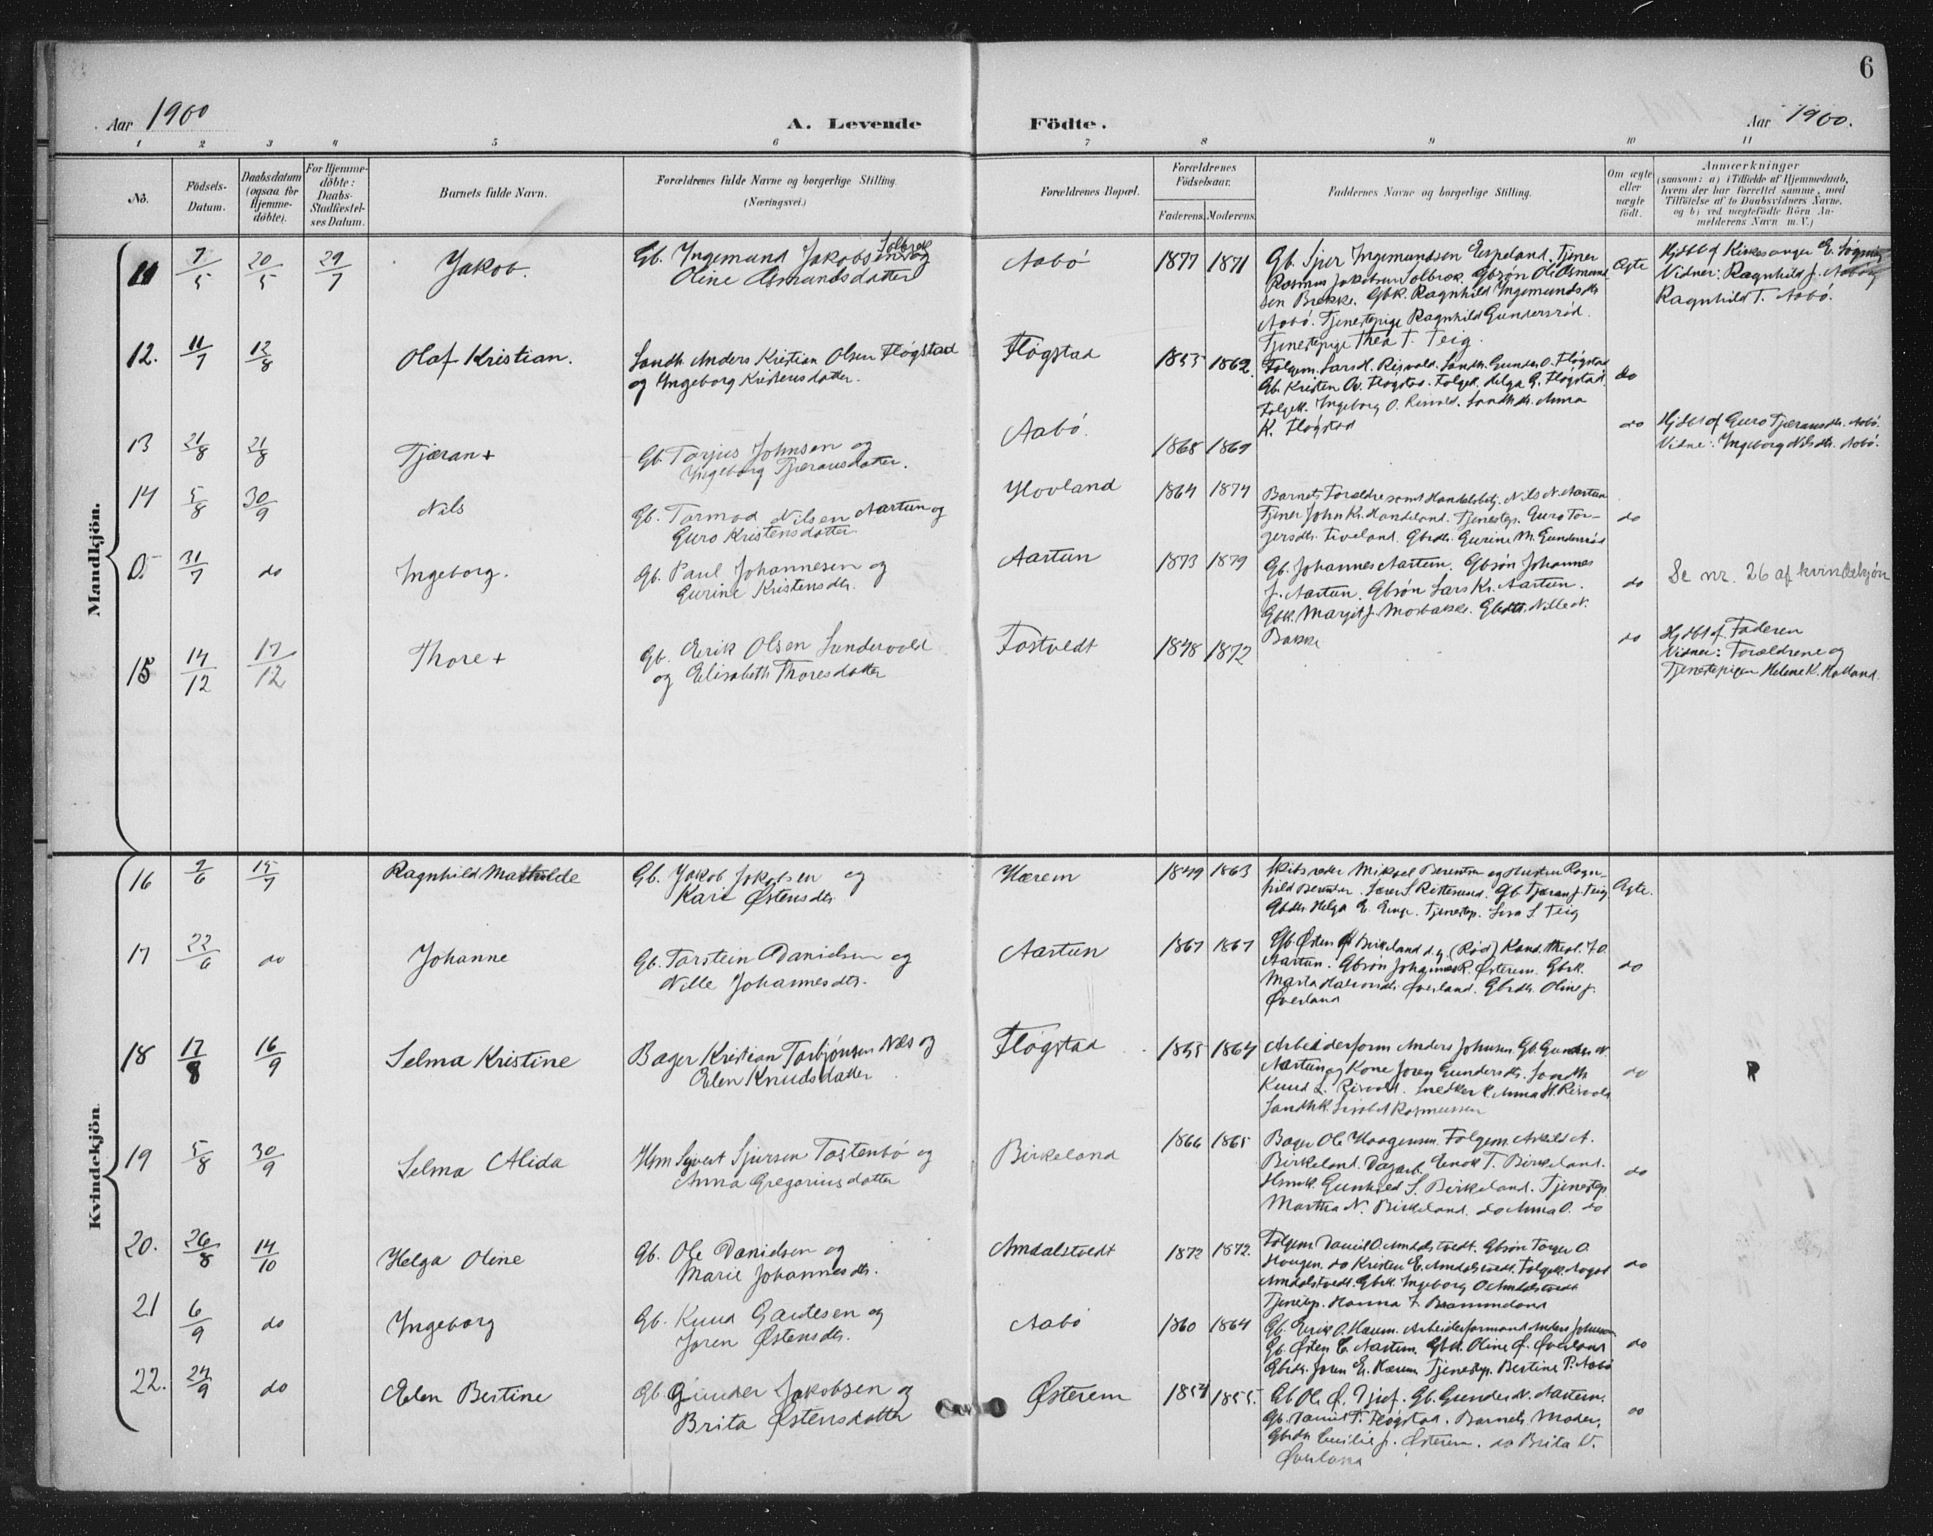 6
Aar 1900
A. Levende Födte.
Aar 1900.
1 2 3 4 5 6 7 8 9 10 11
No.
Födsels-Datum.
Daabsdatum (ogsaa for Hjemme-döbte).
For Hjemme-döbte: Daabs-Stadfæstel-ses Datum.
Barnets fulde Navn.
Forældrenes fulde Navne og borgerlige Stilling.
(Næringsvei.)
Forældrenes Bopæl.
Forældrenes Födselsaar.
Faderens. Moderens.
Faddernes Navne og borgerlige Stilling.
Om ægte eller uægte födt.
Anmærkninger
(saasom: a) i Tilfælde af Hjemmedaab,
hvem der har forrettet samme, med
Tilföielse af to Daabsvidners Navne,
og b) ved uægtefödte Börn An-
melderens Navn m. V.)
Mandkjön.
11 7/5 20/5 29/7 Jakob. Gb. Ingemund Jakobsen Solbræk og
Oline Asmundsdatter
Aabö 1877 1871 Gb. Sjur Ingemundsen Espeland. Tjener
Rasmus Jakobsen Solbræk. Gbsön Ole Asmund
sen Brekke. Gbk. Ragnhild Ingemundsdtr
Aabö. Tjenestepige Ragnhild Gundersröd.
Tjenestepige Thea T. Teig.
Ægte
Hjdbt af Kirkesanger E.
Vidner: Ragnhild J. Aabö og
Ragnhild T. Aabö.
12. 11/7 12/8 Olaf Kristian. Landh. Anders Kristian Olsen Flögstad
og Ingeborg Kristensdatter.
Flögstad 1855 1862. Folgem. Lars L. Risvold. Landh. Gunder O. Flögstad
Gb. Kristen O. Flögstad. Folgek. Helga G. Flögstad.
Folgek. Ingeborg O. Risvold. Landh.dtr. Anna
K. Flögstad
do
13 21/8 21/8 Tjæran + Gb. Torjus Johnsen og
Ingeborg Tjæransdatter.
Aabö. 1865 1869 do
Hjdbt af Guro Tjæransdtr. Aabö.
Vidne: Ingeborg Nilsdtr. Aabö.
14 5/8 30/9 Nils Gb. Tormod Nilsen Aartun og
Guro Kristensdatter
Hovland 1864 1874 Barnets Forældre samt Handelsbetj. Nils N. Aartun
Tjener John Kr. Handeland. Tjenestep. Guro Tor-
gersdtr. Tiveland. Gbrdtr. Gurine M. Gundersröd
do
0. 31/7 do Ingeborg. Gb. Paul Johannesen og
Gurine Kristensdtr.
Aartun 1873 1879 Gb. Johannes Aartun. Gbsön Johannes
J. Aartun. Gbsön Lars Kr. Aartun.
Gbk. Margit J. Mosbakke. Gbdtr. Nille N.
Bakke
do
Se nr. 26 af kvindekjön
15 14/12 17/12 Thore + Gb. Eerik Olsen Sundevold
og Elisabeth Thoresdatter
Tostvedt 1848 1872 do
Hjdbt af. Faderen
Vidner: Forældrene og
Tjenestepigen Helene K. Holland.
Kvindekjön.
16 2/6 15/7 Ragnhild Mathilde Gb. Jakob Jakobsen og
Kari Østensdtr
Hærem 1849 1863 Skibsreder Mikael Berentsen og Hustru Ragn-
hild Berentsen. Gb. Tjæran J. Teig
Gbdtr. Helga E. Tjenestep. Lisa S. Teig
Ægte.
17 22/6 do Johanne Gb. Torstein Danielsen og
Nille Johannesdtr.
Aartun 1867 1867 Gb. Østen Ø. Birkeland d.y. (Röd) Kand. theol. T. O.
Aartun. Gbsön Johannes P. Østerem. Gbk.
Marta Halvorsdtr. Øverland. Gbrdtr. Oline J.
Øverland
do
18 17/8 16/9 Selma Kristine Bager Kristian Torbjörnsen Næs og
Elen Knudsdatter
Flögstad 1855 1864 Arbeiderform. Anders Johnsen. Gb. Gunder N.
Aartun og Kone Joren Gundersdtr. Landh.
Knud L. Risvold. Snedkerk. Anna H. Risvold
Landhk. Lisabet Rasmussen
do R
19 5/8 30/9 Selma Alida Hm Syvert Sjursen Tostenbö og
Anna Gregoriusdatter
Birkeland 1866 1865 Bager Ole Haagensen. Folgem. A.
Birkeland. Dagarb. Enok T. Birkeland.
Hmk. Gunhild S. Birkeland. Tjenestep.
Martha N. Birkeland. do Anna O. do
do
20. 26/8 14/10 Helga Oline Gb. Ole Danielsen og
Marie Johannesdtr.
Amdalstvedt 1872 1872. Folgem. Daniel O. Amdalstvedt. Gbsön Torger O.
Haugen. do Kristen E. Amdalstvedt. Folgek. Aagot
Amdalstvedt. Gbk. Ingeborg O. Amdalstvedt
Tjenestep. Hanna T.
do
21 6/9 do Ingeborg Gb. Knud Gautesen og
Joren Østensdtr.
Aabö 1860 1864 Gb. Erik O. Hærem. Arbeiderformand Anders Johnsen
Gb. Østen E. Aartun. Gbk. Oline Ø. Øverland
Gbrdtr. Joren E. Hærem Tjenestep. Bertine P. Aabö
do
22. 24/9 do Elen Bertine Gb. Gunder Jakobsen og
Brita Østensdatter
Østerem 1854 1855. Gb Ole Ø. Gb. Gunder N. Aartun.
Gb. Daniel T. Flögstad. Barnets Moder,
Gbrdtr. Emilie J. Østerem. do Brita D.
Øverland
do